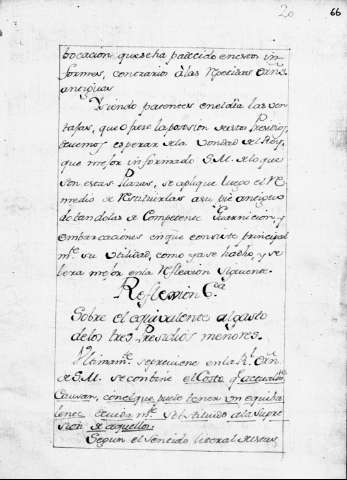 20 66
bocacion que se ha padecido en estos in-
formes, contrarios à las repetidas Ôrñs
antiguas
Viendo pues entonces en el dia las ven-
tajas, que ofrece la posesion de estos Presidios,
devemos esperar de la Bondad del Rey,
que mejor informado S.M. de lo que
son estas Plazas, se aplique luego el Re-
medio de restituirlas a su pie antiguo
dotandolas de Competente Guarnicion, y
embarcaciones en que consiste principal
mte. su Utilidad, como ya se ha dho, y se
verá mejor en la Reflexion siguiente.
Reflexion 6ª
Sobre el equivalente al gasto
de los tres Presidios menores.
Ultimamte. se previene en la Rl. Orñ
de S.M. se combine el Costo q.e actualmte.
Causan, con el que puede tener un equiba-
lente devidamte. substituido a la Supre-
sion de aquellos.
Segun el sentido literal de estas